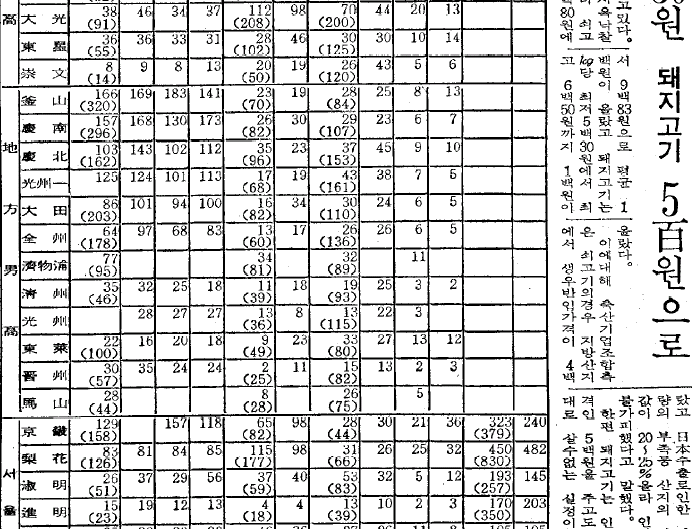 高 大光 38 (91) 46 34 37 112 (208) 98 70 (200) 44 20 13
東星 36 (55) 36 33 31 28 (102) 46 30 (125) 30 10 14
崇文 8 (14) 9 8 13 20 (50) 19 26 (120) 43 5 6
地方男高
釜山 166 (320) 169 183 141 23 (70) 19 28 (84) 25 8 13
慶南 157 (296) 168 130 173 26 (82) 30 29 (107) 23 6 7
慶北 103 (162) 143 102 112 35 (96) 23 37 (153) 45 9 10
光州一 125 124 101 113 17 (68) 19 43 (161) 38 7 5
大田 86 (203) 101 94 100 16 (82) 34 30 (110) 24 6 5
全州 64 (178) 97 68 83 13 (60) 17 26 (136) 26 6 5
濟物浦 77 (95) 34 (81) 32 (89) 11
淸州 35 (46) 32 25 18 11 (39) 18 19 (93) 25 3 2
光州 28 27 27 13 (36) 8 13 (115) 22 3
東萊 22 (100) 16 20 18 9 (49) 23 33 (80) 27 13 12
晋州 30 (57) 35 24 24 2 (25) 11 15 (82) 13 2 3
馬山 28 (44) 8 (28) 26 (75) 5
서울
京畿 129 (158) 157 118 65 (82) 98 28 (44) 30 21 36 323 (379) 240
梨花 83 (126) 81 84 85 115 (177) 98 31 (66) 26 25 32 450 (830) 482
淑明 26 (51) 37 29 56 37 (59) 40 53 (83) 32 5 12 193 (257) 145
進明 15 (23) 19 12 13 4 (18) 4 13 (39) 10 2 3 170 (350) 203
원 돼지고기 5百원으로
서 9백83원으로 평균 1
백원이 올랐고 돼지고기는
kg당 최저 5백30원에서 최
고 6백50원까지 1백원이
올랐다.
이에대해 축산기업조합측
은 쇠고기의경우 지방산지
에서 생우반입가격이 4백
랐고 日本수출로인한
량의 부족풍 산지의
값이 20~25%올라 인
불가피했다고 말했다.
한편 돼지고기는 인
격인 5백원을 주고도
대로 살수없는 실정이